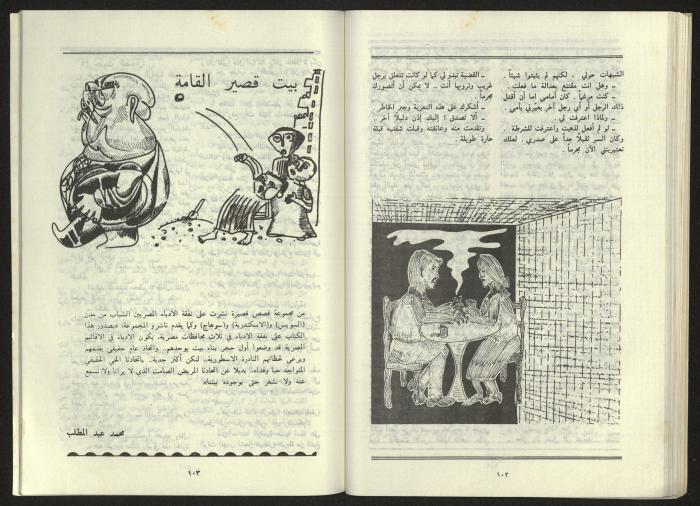 الشبهات حولي ، لكنهم لم يثبتوا شيئاً .
ـ وهل انت مقتنع بعدالة ما فعلت .
ـ كنت مرغماً . كان أمامي اما أن أقتل
ذلك الرجل أو أي رجل آخر يعيّرني بأمي .
ـ ولماذا اعترفت لي .
ـ لو لم أفعل لذهبت واعترفت للشرطة .
وكان السر ثقيلاً جداً على صدري . لعلك
تعتبرينني الآن مجرماً .
ـ القضية تبدو لي كما لو كانت تتعلق برجل
غريب وترويها أنت .. لا يمكن أن أتصورك
مجرماً .
ـ أشكرك على هذه التعزية وجبر الخاطر .
ـ ألا تصدق ؟ إليك إذن دليلاً آخر .
وتقدمت منه وعانقته وقبلت شفتيه قبلة
حارة طويلة .
١٠٢
بيت قصير القامة
من مجموعة قصص قصيرة نشرت على نفقة الأدباء المصريين الشباب من مدن
(السويس) و(الاسكندرية) و(سوهاج) وكما يقدم ناشرو المجموعة: «بصدور هذا
الكتاب على نفقة الأدباء في ثلاث محافظات مصرية، يكون الأدباء في الاقاليم
المصرية قد وضعوا أول حجر في بناء بيت يوحدهم.. واتحاد عام حقيقي يضمهم
ويرعى لحظاتهم النادرة الاسطورية.. لنكن أكثر جدية.. باتحادنا الحي الحقيقي
المتواجد حبا وفداء.. بديلا عن اتحادنا المريض الصامت الذي لا يرانا ولا نسمع
عنه ولا نشعر حتى بوجوده بيننا».
محمد عبد المطلب
١٠٣